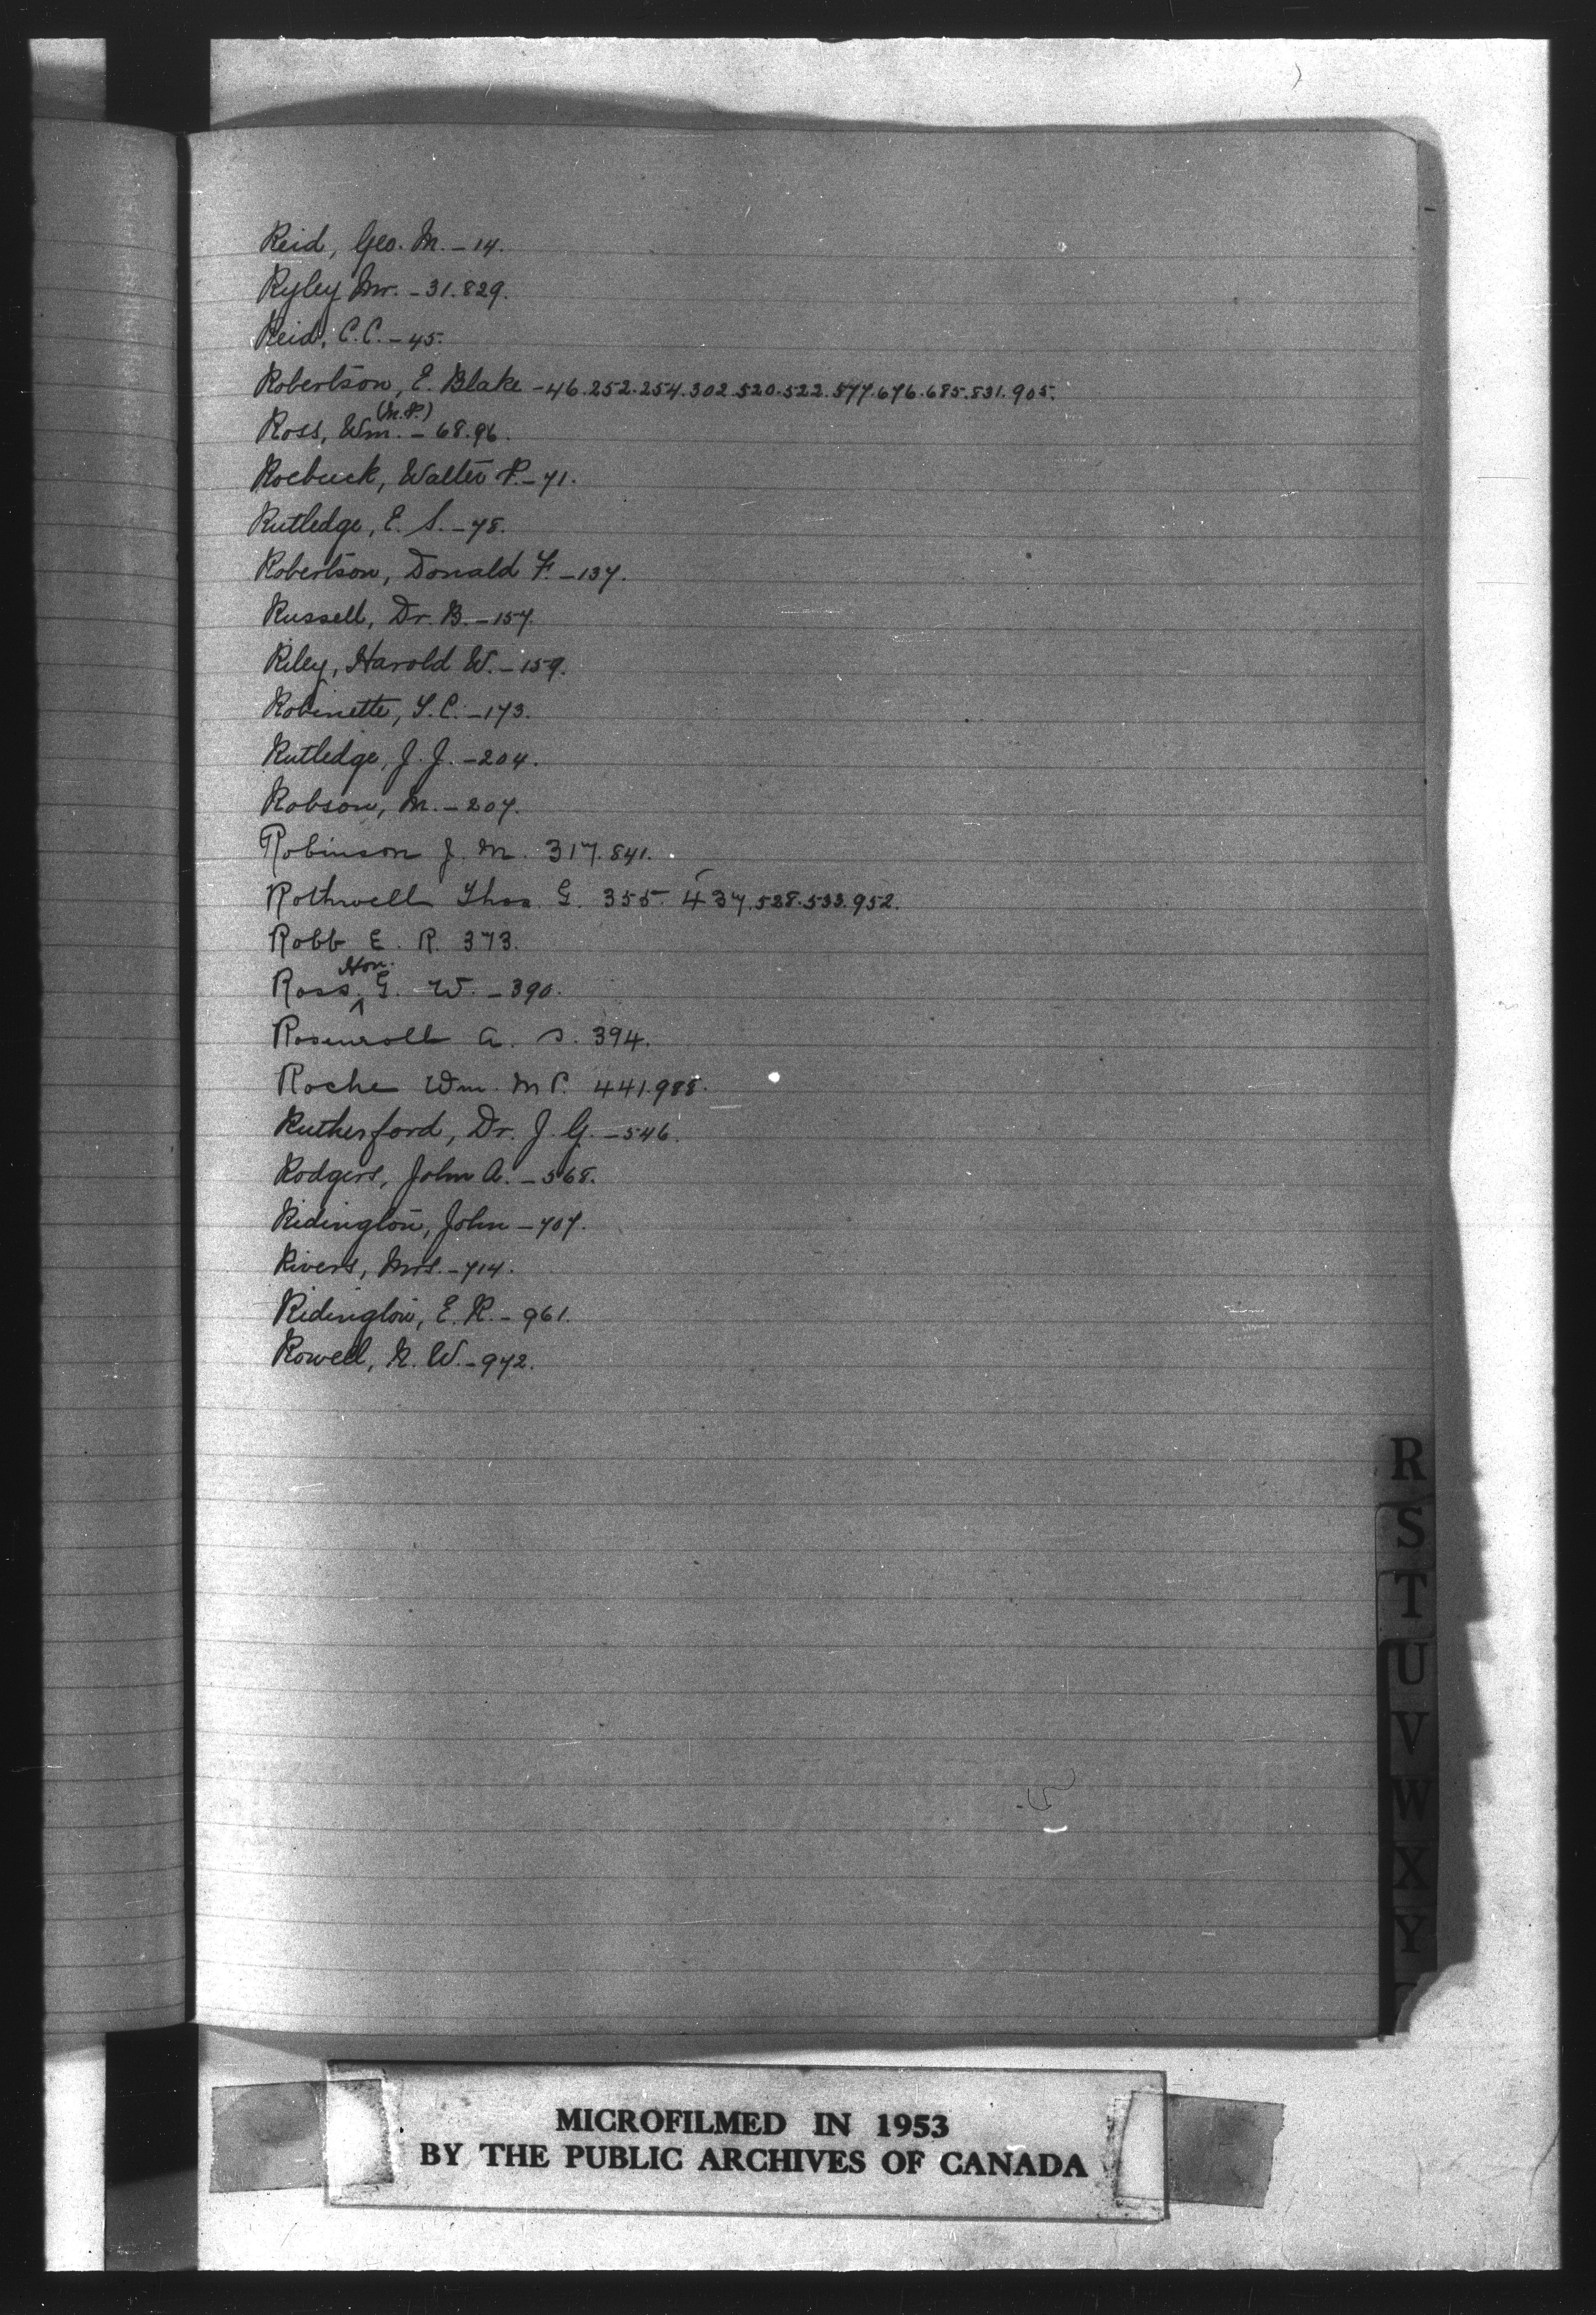 Reid, Geo. M. - 14.
Ryley Mr. - 31.829.
Reid, C.C. - 45.
Robertson, E. Blake - 46.252.254.302.520.522.577.676.685.831.905.
(M.P.)
Ross, Wm. - 68.96.
Roebuck, Walter P. - 71.
Rutledge, E. S. - 78.
Robertson, Donald F. - 137.
Russell, Dr. B. - 157.
Riley, Harold W. - 159.
Robinette, T.C. - 173.
Rutledge, J. J. - 204.
Robson, M. - 207.
Robinson J. M. 317.841.
Rothwell Thos. G. 355. 437.528.533.952.
Robb E. R. 373.
Hon.
Ross, ^ G. W. - 390.
Rosenroll A. S. 394.
Roche Wm. M P. 441.988.
Rutherford, Dr. J. G. - 546.
Rodgers, John A. - 568.
Ridington, John - 707.
Rivers, Mrs. - 714.
Ridington, E. R. - 961.
Rowell, N. W. - 972.
R
S
T
U
V
W
X
Y
MICROFILMED IN 1953
BY THE PUBLIC ARCHIVES OF CANADA